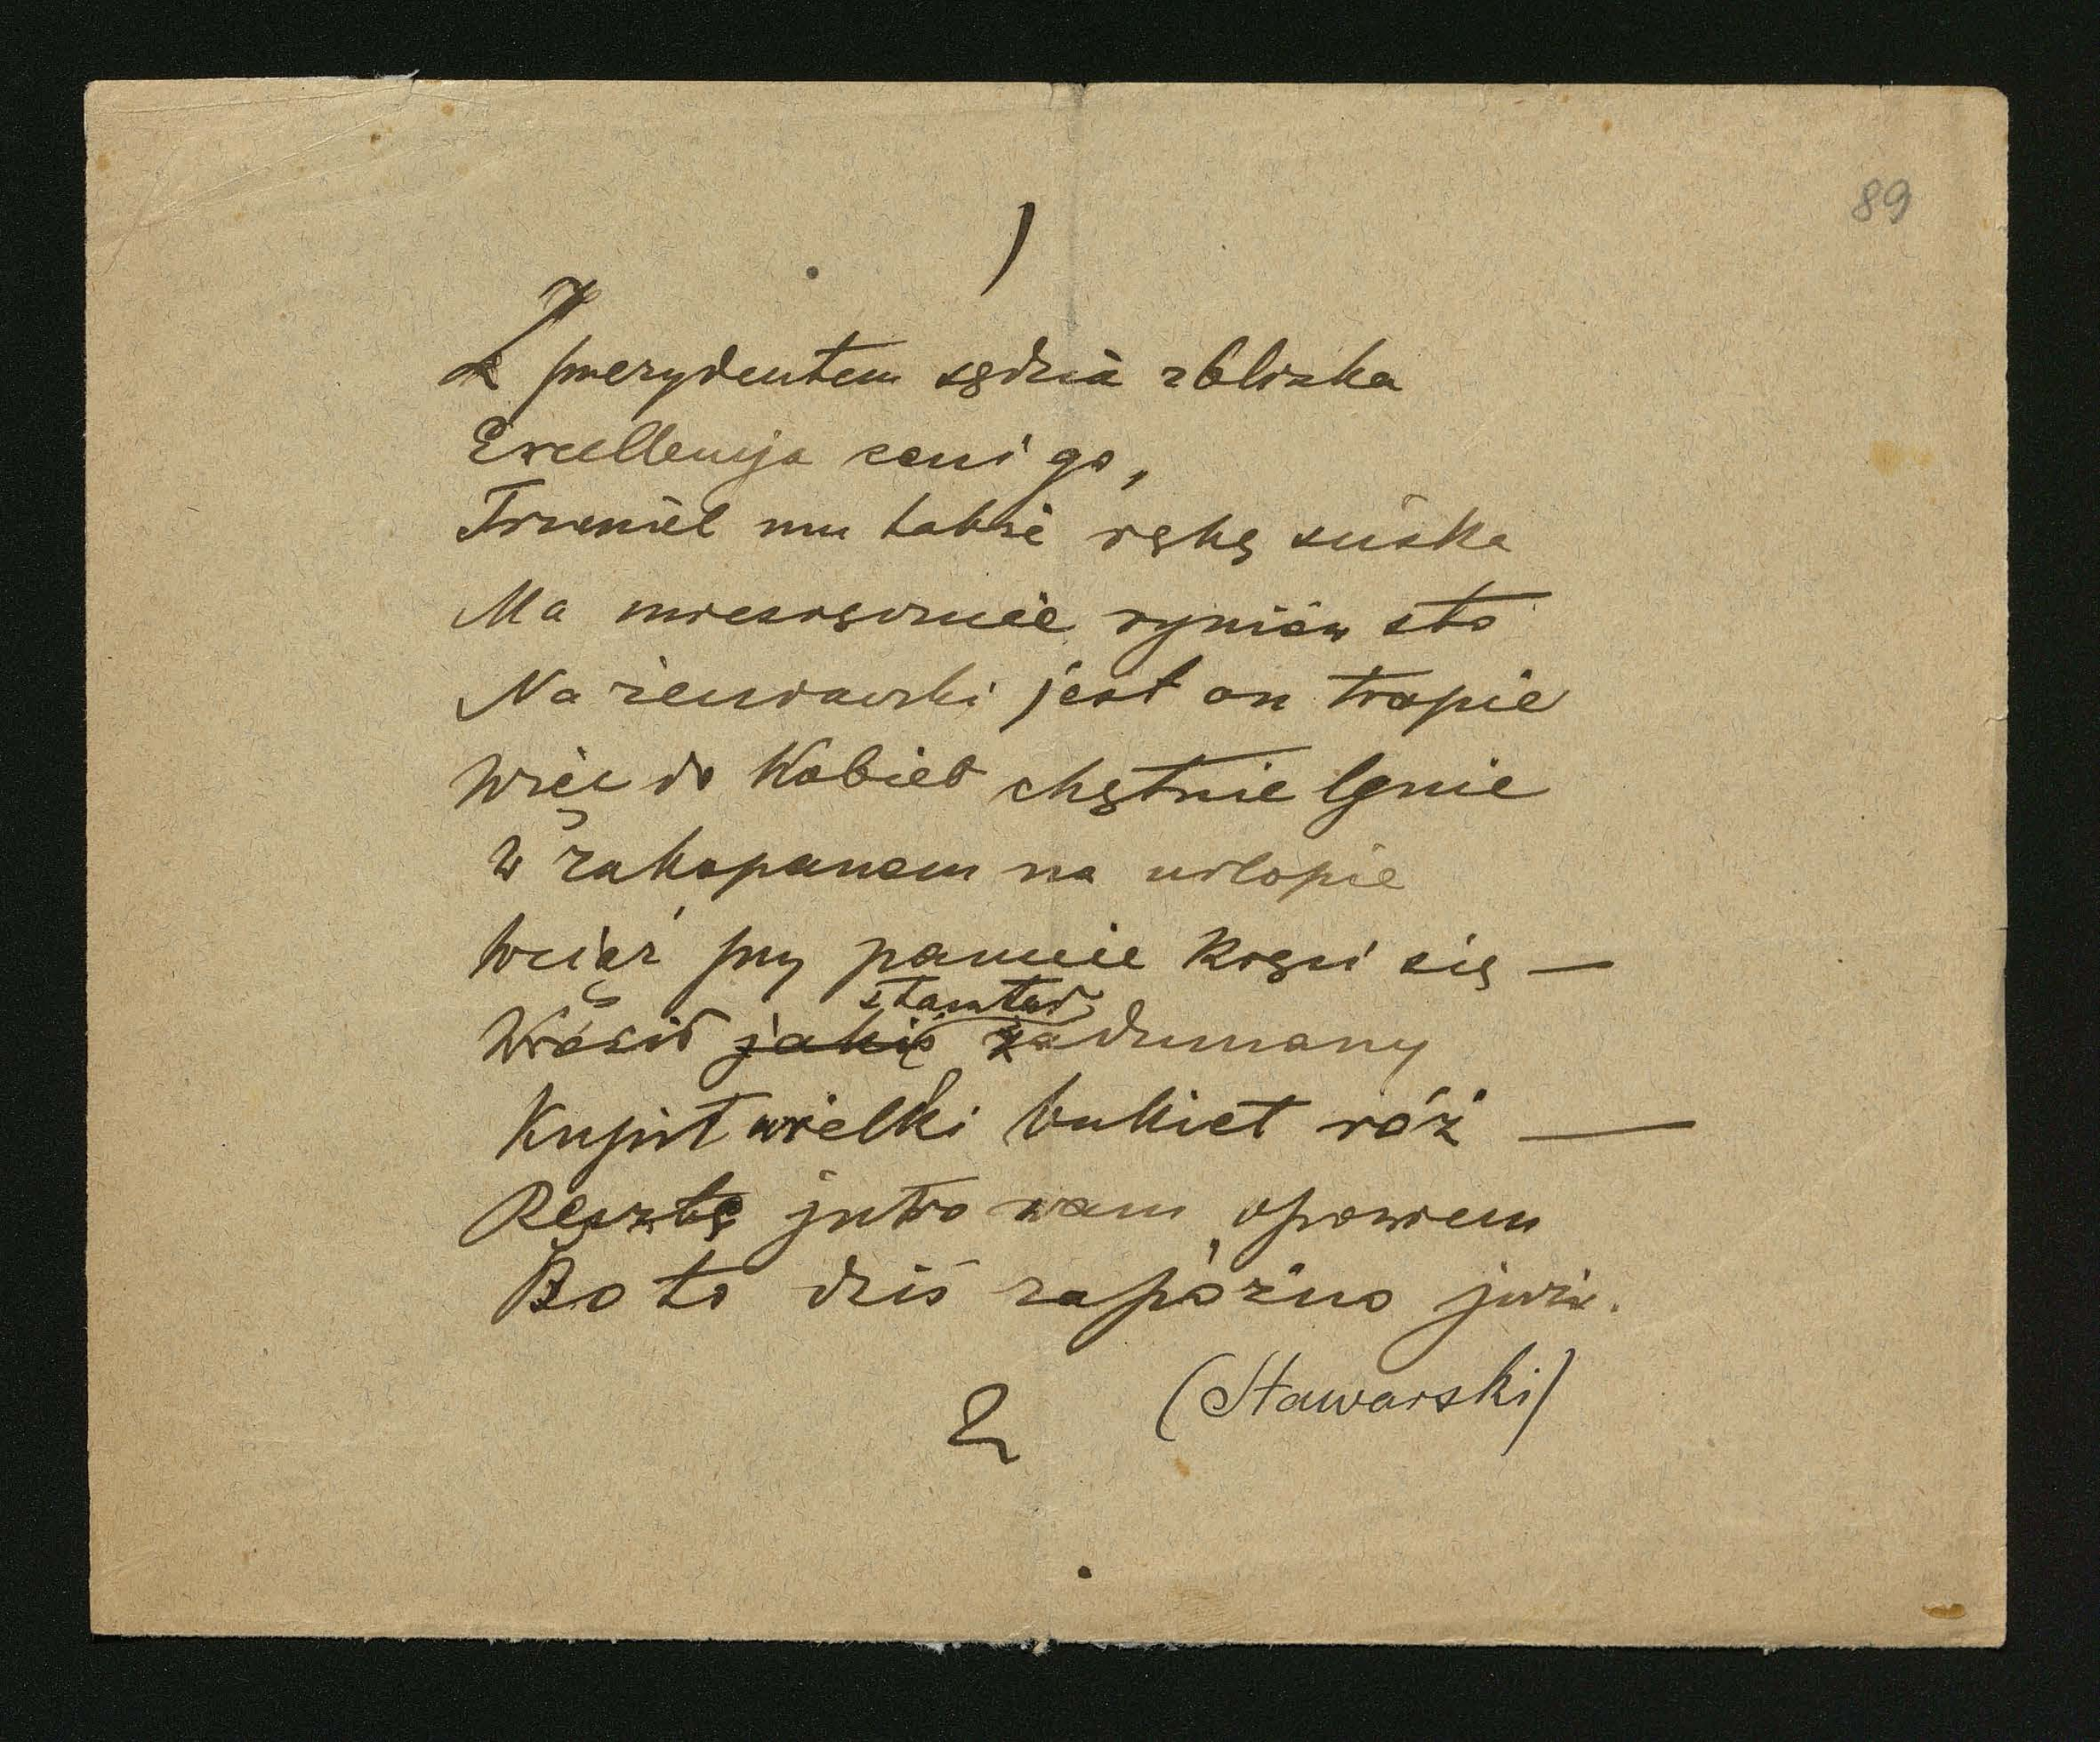 89
1
Z prezydentem sędzia zblizka
Excellencya ceni go,
mu także rękę ściska
Ma miesięcznie ryniów sto
Na żeniaczki jest on tropie
Więc do Kobiet chętnie lgnie
W Zakopanem na urlopie
Wciąż przy pannie kręci się —
Wrócił jakiś stamtąd zadumany
Kupił wielki bukiet róż —
Resztę jutro wam opowiem
Bo to dziś zapóźno już.
(Stawarski)
2